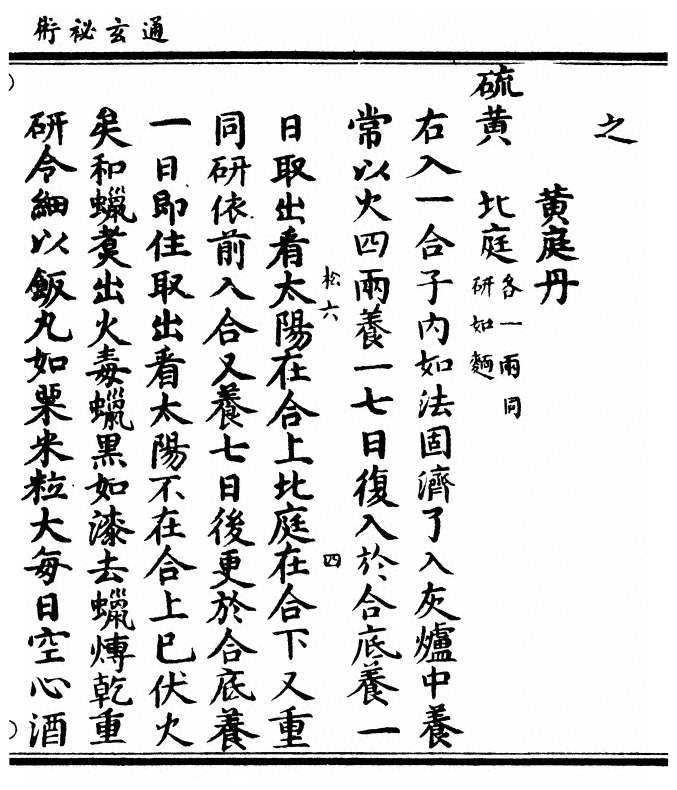 通玄祕術
之
黄庭丹
硫黄　北庭各一兩同研如麵
右入一合子内如法固濟了入灰爐中養
常以火四兩養一七日復入於合底養一
松六
四
日取出看太陽在合上北庭在合下又重
同研依前入合又養七日後更於合底養
一日即住取出看太陽不在合上巳伏火
矣和蠟煑出火毒蠟黒如漆去蠟煿乾重
研令細以飯丸如粟米粒大每日空心酒